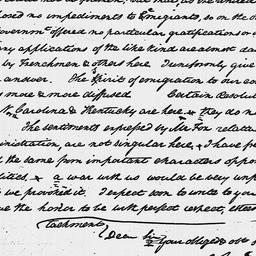 posed no impediments to Emigrants, so on the o
Governmt offered no particular gratifications or
any applications of the like kind are almost da
by Frenchmen & others here I uniformly give
answer. The Spirit of emigration to our co
more & more diffused Certain
N. Carolina & Kentucky are here, & they do n
The sentiments expressed by Mr. Fox relat
inistration, are not singular here, & I have
the same from important characters oppo
lities, & a war with us would be very unp
we provoked it. I expect soon to write to you
the honor to be with perfect respect, este
Dear Sir Your obliged & obt